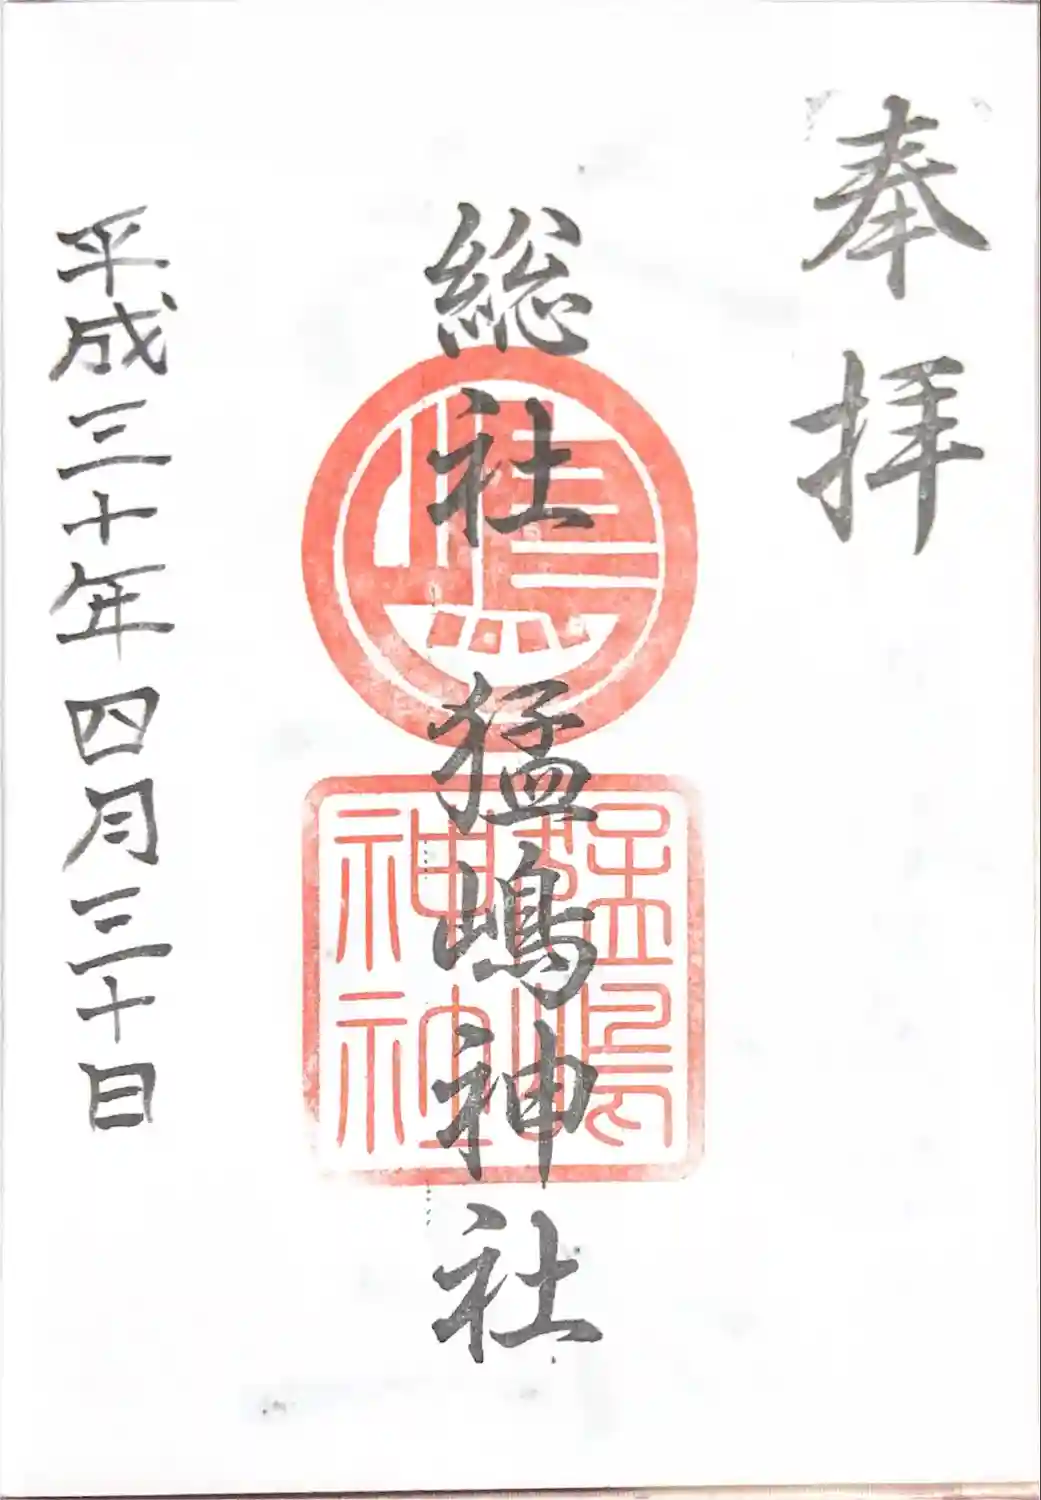 奉拝
総社猛嶋神社
嶋
猛嶋神社
平成三十年四月三十日